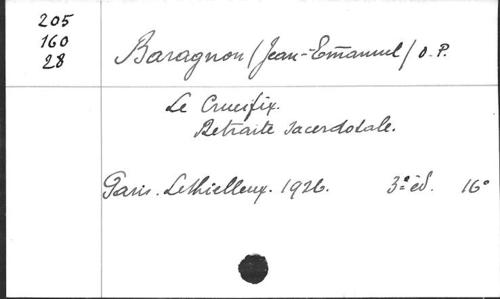 205
160
28
Baragnon (Jean-Em̄anuel) O.P.
Le Crucifix.
Retraite sacerdotale.
Paris. Lethielleux. 1926. 3ᵉ éd. 16°